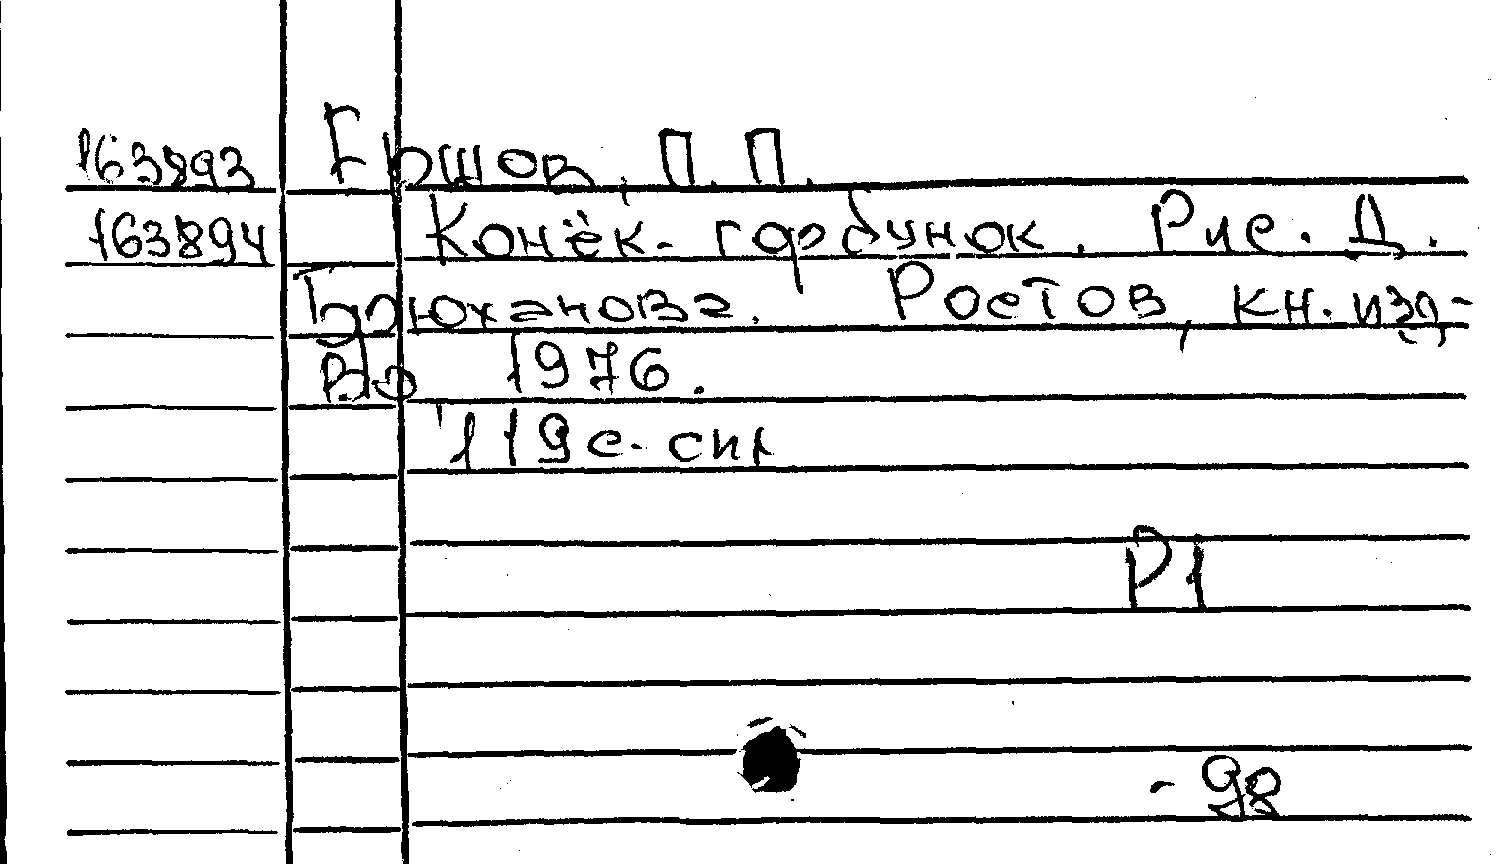 163893 Ершов, П. П.
163894 Конёк-горбунок. Рис. Д.
Брюханова. Ростов, кн. изд-
во 1976.
119 с. сил
Р1
- 98